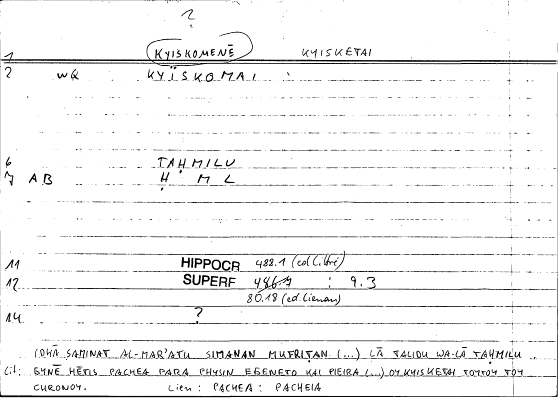 ?
1 KYISKOMENĒ KYISKETAI
2 WQ KYÏSKOMAI :
6 TAḤMILU
7 AB Ḥ M L
11 HIPPOCR 488.1 (ed Littré)
12 SUPERF 486.7 : 9.3
80.18 (ed Lienau)
14 ?
IDHĀ SAMINAT AL-MAR'ATU SIMANAN MUFRIṬAN (...) LĀ TALIDU WA-LĀ TAḤMILU
Lit: GYNĒ HĒTIS PACHEA PARA PHYSIN EGENETO KAI PIEIRA (...) OY KYISKETAI TOYTOY TOY
CHRONOY. Lien : PACHEA : PACHEIA